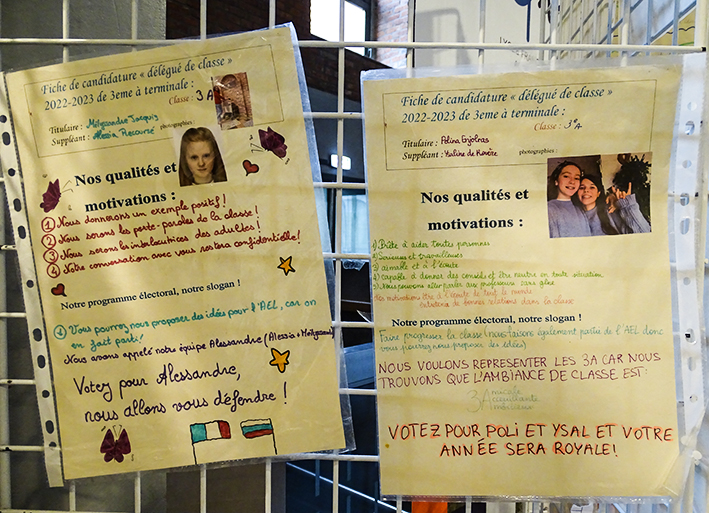 Fiche de candidature « délégué de classe »
2022-2023 de 3eme à terminale :
Classe : 3 A
Titulaire :
Suppléant : Alessia
photographies :
Nos qualités et
motivations :
1 Nous donnerons un exemple positif !
2 Nous serons les porte-paroles de la classe !
3 Nous serons les interlocutrices des adultes !
4 Notre conversation avec vous restera confidentielle !
Notre programme électoral, notre slogan !
1 Vous pourrez nous proposer des idées pour l'AEL, car on
en fait parti !
Nous avons appelé notre équipe Alessandre (Alessia +
Votez pour Alessandre,
nous allons vous défendre !
Fiche de candidature « délégué de classe »
2022-2023 de 3eme à terminale :
Classe : 3e A
Titulaire : Polina
Suppléant : Ysaline de
photographies :
Nos qualités et
motivations :
1) Prête à aider toutes personnes
2) Sérieuses et travailleuses
3) aimable et à l'écoute
4) capable de donner des conseils et être neutre en toute situation
5) Nous pouvons aller parler aux professeurs sans gêne
Nos motivations être à l'écoute de tout le monde
entretenir de bonnes relations dans la classe
Notre programme électoral, notre slogan !
Faire progresser la classe (nous faisons également partie de l'AEL donc
vous pourrez nous proposer des idées)
NOUS VOULONS REPRÉSENTER LES 3A CAR NOUS
TROUVONS QUE L'AMBIANCE DE CLASSE EST:
Amicale
3 Accueillante
VOTEZ POUR POLI ET YSAL ET VOTRE
ANNÉE SERA ROYALE!